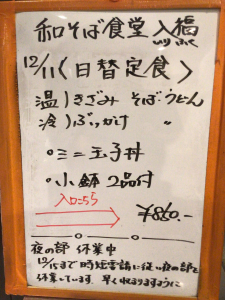 和そば食堂 入福
いり ふく
12/11 〈日替定食〉
温)きざみ そばうどん
冷)ぶっかけ 〃
◦ミニ玉子丼
◦小鉢 2品付
入口こちら
¥860.-
夜の部 休業中
12/15まで 時短要請に従い夜の部を
休業しています 早く収まりますように